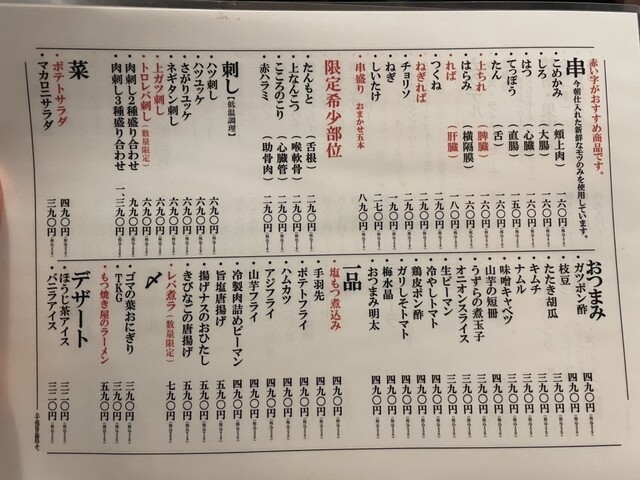 赤い字がおすすめ商品です。
串 今朝仕入れた新鮮なモツのみを使用しています。
・こめかみ (頬上肉) 一六〇円
・しろ (大腸) 一六〇円
・はつ (心臓) 一六〇円
・てっぽう (直腸) 一五〇円
・たん (舌) 一六〇円
・上ちれ (脾臓) 一六〇円
・はらみ (横隔膜) 一六〇円
・れば (肝臓) 一八〇円
・つくね 二九〇円
・ねぎれば 二九〇円
・チョリソ 二九〇円
・ねぎ 二九〇円
・しいたけ 二七〇円
・串盛り おまかせ五本 八九〇円
限定希少部位
・たんもと (舌根) 二九〇円
・上なんこつ (喉軟骨) 二九〇円
・こころのこり (心臓管) 二九〇円
・赤ハラミ (助骨肉) 二九〇円
刺し【低温調理】
・ハツ刺し 六九〇円
・ハツユッケ 六九〇円
・さがりユッケ 六九〇円
・ネギタン刺し 六九〇円
・上ガツ刺し 六九〇円
・トロレバ刺し(数量限定) 六九〇円
・肉刺し2種盛り合わせ 九九〇円
・肉刺し3種盛り合わせ 一、三九〇円
菜
・ポテトサラダ 四九〇円
・マカロニサラダ 三九〇円
おつまみ
・ガツポン酢 四九〇円
・枝豆 四九〇円
・たたき胡瓜 四九〇円
・キムチ 三九〇円
・ナムル 三九〇円
・味噌キャベツ 三九〇円
・山芋の短冊 三九〇円
・うずらの煮玉子 三九〇円
・オニオンスライス 三九〇円
・生ピーマン 三九〇円
・冷やしトマト 四九〇円
・鶏皮ポン酢 四九〇円
・ガリしそトマト 四九〇円
・梅水晶 四九〇円
・おつまみ明太 四九〇円
一品
・塩もつ煮込み 五九〇円
・手羽先 四九〇円
・ポテトフライ 四九〇円
・ハムカツ 四九〇円
・アジフライ 四九〇円
・山芋フライ 四九〇円
・冷製肉詰めピーマン 四九〇円
・旨塩唐揚げ 五九〇円
・揚げナスのおひたし 五九〇円
・きびなごの唐揚げ 五九〇円
・レバ煮ラ(数量限定) 七九〇円
〆
・ゴマの葉おにぎり 三九〇円
・TKG 三九〇円
・もつ焼き屋のラーメン 五九〇円
デザート
・ほうじ茶アイス 三二〇円
・バニラアイス 三二〇円